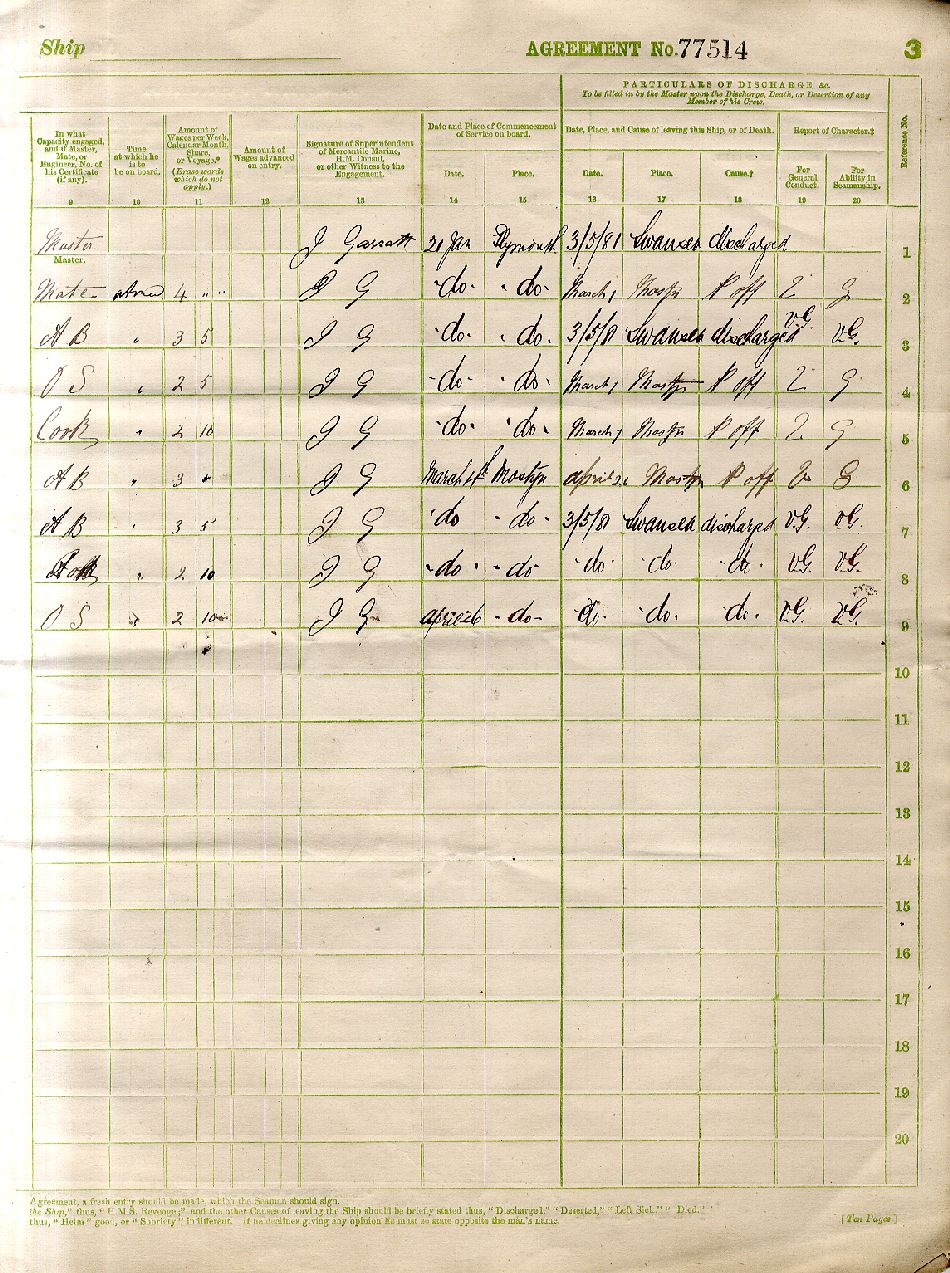 Ship AGREEMENT No. 77514 3
PARTICULARS OF DISCHARGE, &c.
To be filled in by the Master upon the Discharge, Death, or Desertion of any
Member of his Crew.
In what
Capacity engaged,
and if Master,
Mate, or
Engineer, No. of
his Certificate
(if any).
Time
at which he
is to
be on board.
Amount of
Wages per Week,
Calendar Month,
Share,
or Voyage.*
(Erase words
which do not
apply.)
Amount of
Wages advanced
on entry.
Signature of Superintendent
of Mercantile Marine,
H.M. Consul,
or other Witness to the
Engagement.
Date and Place of Commencement
of Service on board.
Date. Place.
Date, Place, and Cause of leaving this Ship, or of Death.
Date. Place. Cause.†
Report of Character.‡
For
General
Conduct.
For
Ability in
Seamanship.
Reference No.
9 10 11 12 13 14 15 16 17 18 19 20
Master J Garratt 21 Jan Plymouth 3/5/81 Swansea discharged 1
Master.
Mate 4 " " J G do. do. March Mostyn P off G 2
A B " 3 5 J G do. do. 3/5/81 Swansea discharged VG VG. 3
O S " 2 5 J G do. do. March Mostyn P off G 4
Cook " 2 10 J G do. do. March Mostyn P off G 5
A B " 3 " J G March Mostyn April Mostyn P off G 6
A B " 3 5 J G do do 3/5/81 Swansea discharged VG. VG. 7
Cook " 2 10 J G do do do. do. do. VG. VG. 8
O S " 2 10 J G April 26 do do. do. do. VG. VG. 9
10
11
12
13
14
15
16
17
18
19
20
Agreement, a fresh entry should be made, which the Seaman should sign.
the Ship," thus, "H.M.S. Revenge;" and the other Causes of leaving the Ship should be briefly stated thus, "Discharged," "Deserted," "Left Sick," "Died."
thus, "Helm" good, or "Sobriety" indifferent. If he declines giving any opinion he must so state opposite the man's name.
[Ten Pages]